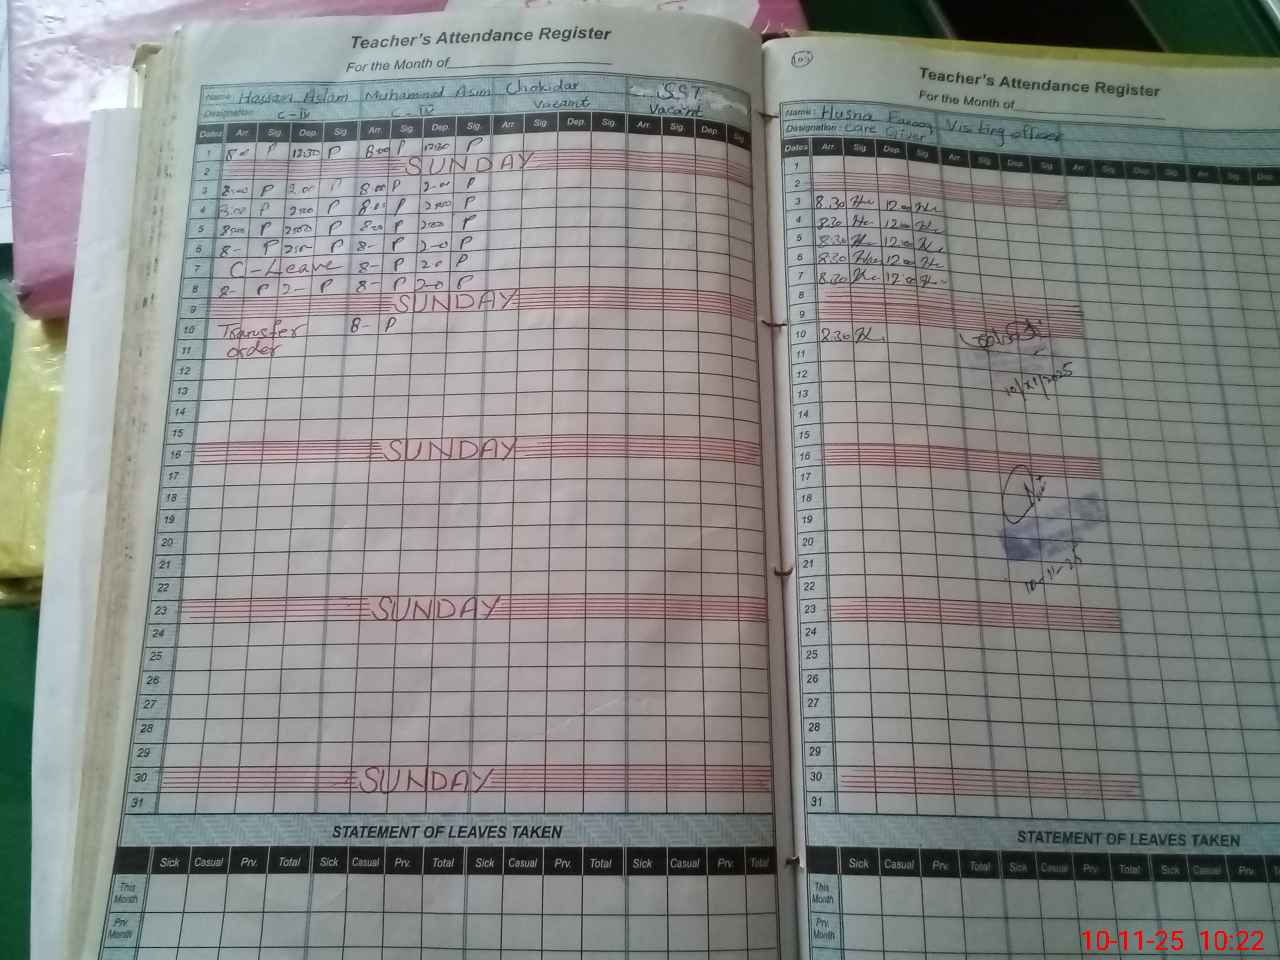 Teacher's Attendance Register
For the Month of
Name: Hassan Aslam Muhammad Asim Chokidar SST
Designation: C-IV C-IV Vacaint Vacaint
Dates Arr. Sig. Dep. Sig. Arr. Sig. Dep. Sig. Arr. Sig. Dep. Sig. Arr. Sig. Dep. Sig.
1 8-00 P 12:30 P 8:00 P 12:30 P
2 SUNDAY
3 8:00 P 2:00 P 8:00 P 2-00 P
4 8:00 P 2:00 P 8:00 P 2:00 P
5 8:00 P 2:00 P 8:00 P 2:00 P
6 8- P 2:0- P 8- P 2-0 P
7 C-Leave 8- P 2-0 P
8 8- P 2- P 8- P 2-0 P
9 SUNDAY
10 Transfer 8- P
11 order
12
13
14
15
16 SUNDAY
17
18
19
20
21
22
23 SUNDAY
24
25
26
27
28
29
30 SUNDAY
31
STATEMENT OF LEAVES TAKEN
Sick Casual Prv. Total Sick Casual Prv. Total Sick Casual Prv. Total Sick Casual Prv. Total
This Month
Prv. Month
Teacher's Attendance Register
For the Month of
Name: Husna Farooq Visiting officer
Designation: Care Giver
Dates Arr. Sig. Dep. Sig. Arr. Sig. Dep. Sig. Arr. Sig. Dep. Sig. Arr. Sig. Dep.
1
2
3 8.30 12:00
4 8.30 12:00
5 8.30 12:00
6 8.30 12:00
7 8.30 12:00
8
9
10 8.30
11
12 10/11/2025
13
14
15
16
17
18
19
20
21
22 10-11-25
23
24
25
26
27
28
29
30
31
STATEMENT OF LEAVES TAKEN
Sick Casual Prv. Total Sick Casual Prv. Total Sick Casual Prv. Total
This Month
Prv. Month
10-11-25 10:22